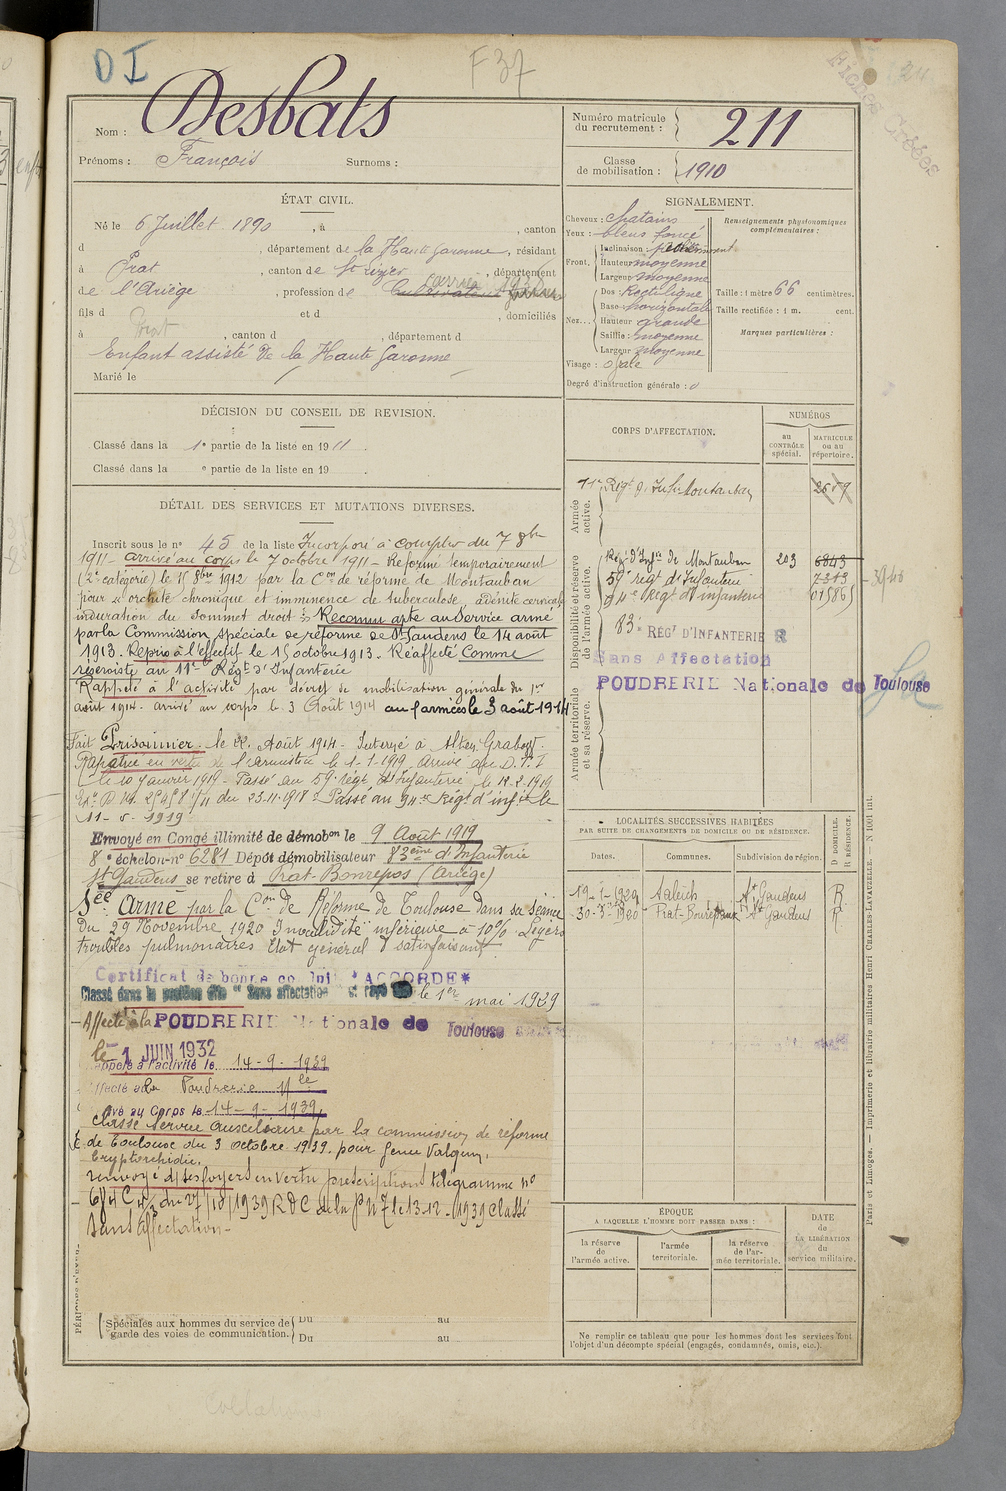 D I
F 37
Fiches Créées
Nom : Desbats
Prénoms : François Surnoms :
Numéro matricule du recrutement : 211
Classe de mobilisation : 1910
ÉTAT CIVIL.
Né le 6 Juillet 1890, à , canton
d , département de la Haute Garonne, résidant
à Prat, canton de St Lizier, département
de l'Ariège, profession de Cultivateur
fils d et d , domiciliés
à , canton d , département d
Enfant assisté de la Haute Garonne
Marié le
SIGNALEMENT.
Cheveux : chatains
Yeux : bleus foncé
Front. Inclinaison :
Hauteur moyenne
Largeur moyenne
Nez... Dos : Rectiligne
Base horizontale
Hauteur grande
Saillie : moyenne
Largeur moyenne
Visage : ovale
Degré d'instruction générale :
Renseignements physionomiques complémentaires :
Taille : 1 mètre 66 centimètres.
Taille rectifiée : 1 m. cent.
Marques particulières :
DÉCISION DU CONSEIL DE REVISION.
Classé dans la 1e partie de la liste en 1911.
Classé dans la e partie de la liste en 19 .
DÉTAIL DES SERVICES ET MUTATIONS DIVERSES.
Inscrit sous le n° 45 de la liste Incorporé à compter du 7 8bre
1911 - arrivé au corps le 7 octobre 1911 - Réformé temporairement
(2e catégorie) le 15 8bre 1912 par la Con de réforme de Montauban
pour « orchite chronique et imminence de tuberculose, adénite cervicale
induration du sommet droit » Reconnu apte au Service armé
par la Commission spéciale de réforme de St Gaudens le 14 août
1913. Repris à l'effectif le 15 octobre 1913. Réaffecté Comme
réserviste au 11e Régt d'Infanterie
Rappelé à l'activité par décret de mobilisation générale du 1er
août 1914. arrivé au corps le 3 Août 1914 aux armées le 3 août 1914
Fait Prisonnier le 22 Août 1914 - Interné à Alten Grabow.
Rapatrié en vertu de l'armistice le 1-1-1919, arrivé au D.T.I
le 10 janvier 1919 - Passé au 59e régt d'Infanterie le 12.2.1919
du 23.11.1918 - Passé au 94e Régt d'infie le
11-5-1919
Envoyé en Congé illimité de démobon le 9 Août 1919
8e échelon - n° 6281 Dépôt démobilisateur 83ème d'Infanterie
St Gaudens se retire à Prat-Bonrepos (Ariège)
Sce Armé par la Con de Réforme de Toulouse dans sa séance
du 29 Novembre 1920 Invalidité inférieure à 10% Légers
troubles pulmonaires Etat général satisfaisant.
Certificat de bonne conduite "ACCORDE"
Classé dans la position dite "Sans affectation" et rayé le 1er mai 1929
Affecté à la POUDRERIE Nationale de Toulouse
le 1 JUIN 1932
Rappelé à l'activité le 14-9-1939
Affecté à la Poudrerie Nle
Arrivé au Corps le 14-9-1939
Classé Service auxiliaire par la commission de réforme
de Toulouse du 3 octobre 1939 pour Genu Valgum,
Cryptorchidie,
renvoyé dans ses foyers en vertu prescriptions télégramme n°
du 27/10/1939 le 13-12-1939 classé
sans affectation -
PÉRIODES D'EXER
Spéciales aux hommes du service de garde des voies de communication.
Du au
Du au
CORPS D'AFFECTATION.
NUMÉROS
au CONTRÔLE spécial.
MATRICULE ou au répertoire.
Armée active.
11e Régt d'Infie Montauban 2659
Disponibilité et réserve de l'armée active.
Régt d'Infie de Montauban 203 6843
59e régt d'Infanterie 7213
94e Régt d'infanterie 01586
3940
83e RÉGT D'INFANTERIE R
Sans Affectation
POUDRERIE Nationale de Toulouse
Armée territoriale et sa réserve.
LOCALITÉS SUCCESSIVES HABITÉES
PAR SUITE DE CHANGEMENTS DE DOMICILE OU DE RÉSIDENCE.
Dates. Communes. Subdivision de région. D DOMICILE. R RÉSIDENCE.
19-1-1929 Salies St Gaudens R
30-3-1930 Prat-Bonrepaux St Gaudens R
ÉPOQUE
A LAQUELLE L'HOMME DOIT PASSER DANS :
la réserve de l'armée active.
l'armée territoriale.
la réserve de l'armée territoriale.
DATE de LA LIBÉRATION du service militaire.
Ne remplir ce tableau que pour les hommes dont les services font l'objet d'un décompte spécial (engagés, condamnés, omis, etc.).
Paris et Limoges. — Imprimerie et librairie militaires Henri CHARLES-LAVAUZELLE. — N 1001 int.